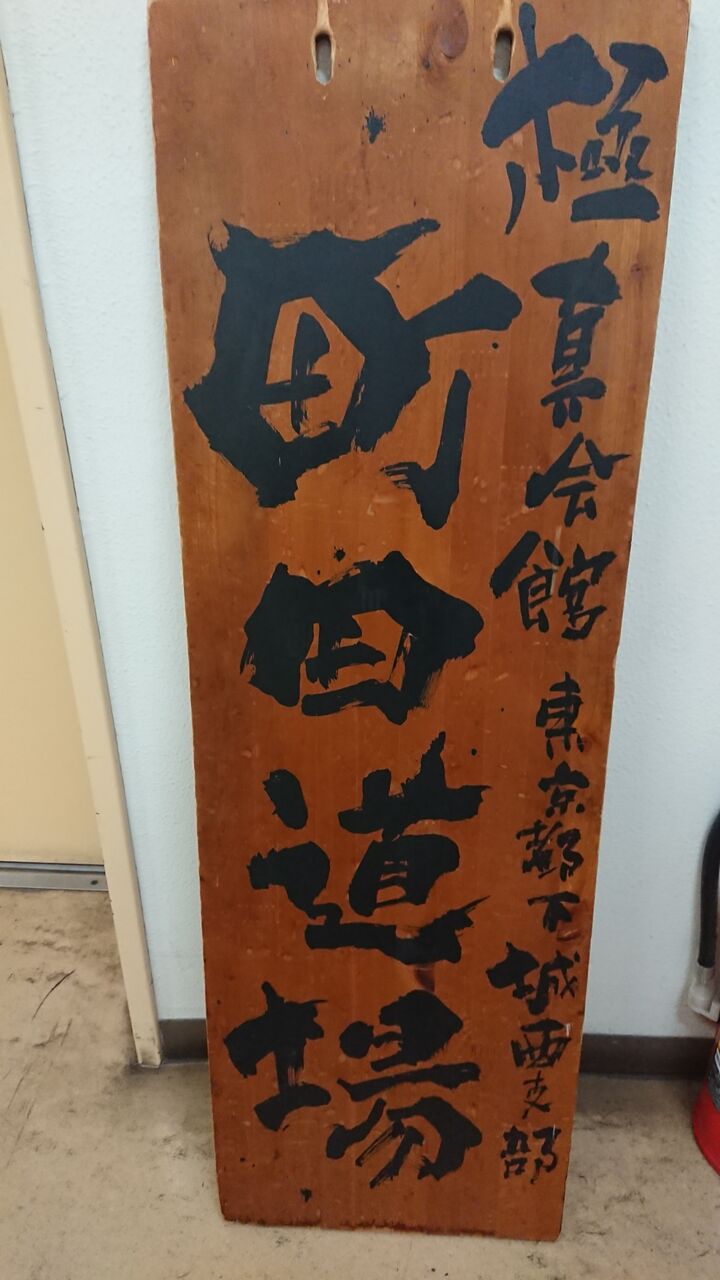 極真会館 東京都下城西支部
町田道場